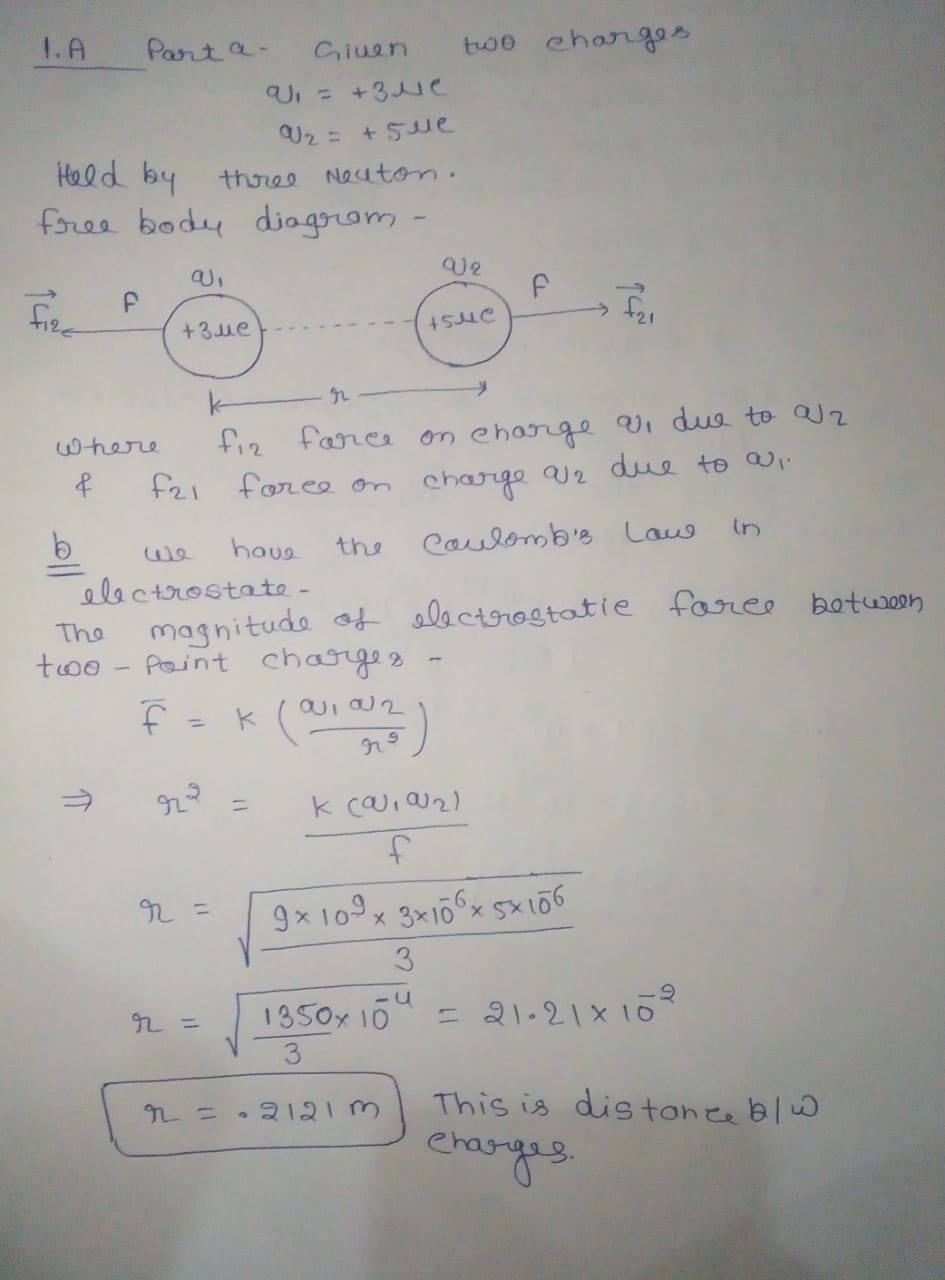 1.A Part a- Given two charges
q1 = +3μc
q2 = +5μc
Held by three Newton.
free body diagram -
q1 q2
f12 F +3μc +5μc F f21
r
where f12 force on charge q1 due to q2
& f21 force on charge q2 due to q1.
b we have the Coulomb's Law in
electrostate-
The magnitude of electrostatic force between
two - Point charges -
F = k (q1 q2 / r²)
⇒ r² = k (q1 q2) / f
r = √(9×10⁹ × 3×10⁻⁶ × 5×10⁻⁶ / 3)
r = √(1350×10⁻⁴ / 3) = 21.21×10⁻²
r = .2121 m This is distance b/w
charges.